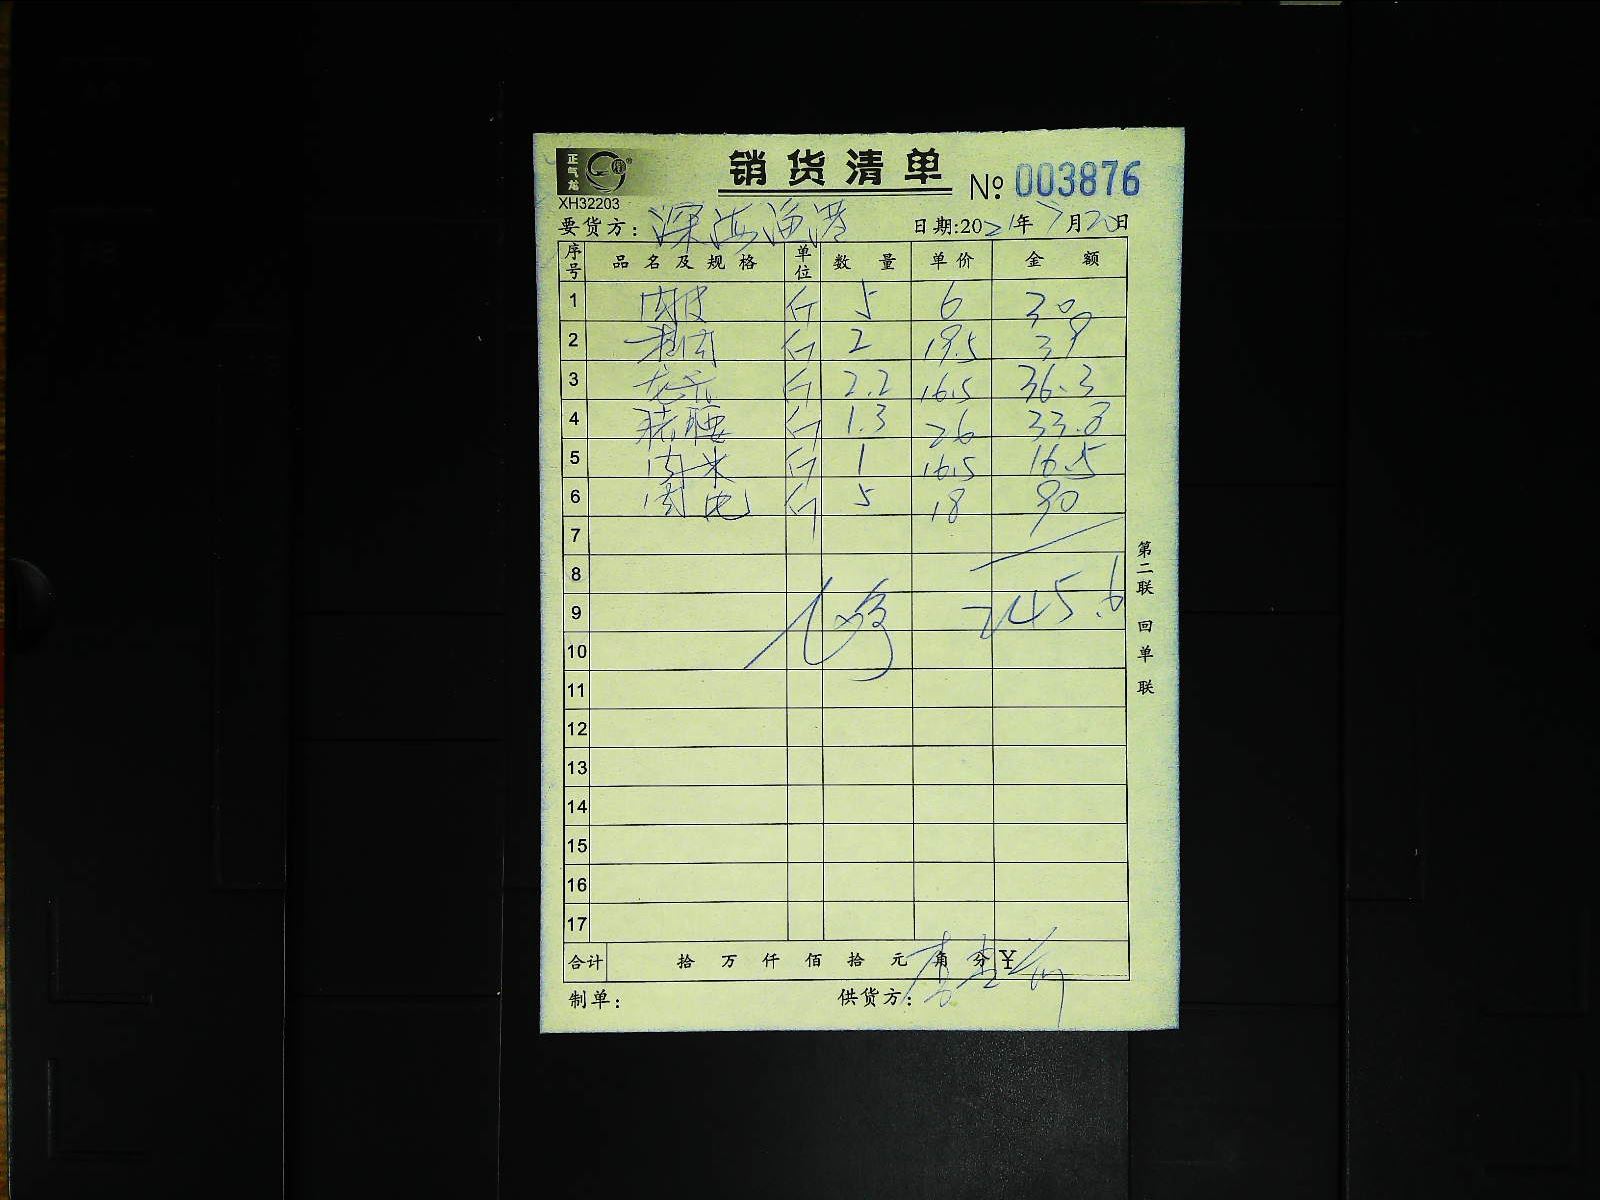 正气龙
XH32203
销货清单
№ 003876
要货方: 深海渔港 日期:2021年7月20日
序号 品名及规格 单位 数量 单价 金额
1 肉皮 斤 5 6 30
2 斤 2 19.5 39
3 龙 斤 2.2 16.5 36.3
4 猪腰 斤 1.3 26 33.8
5 肉米 斤 1 16.5 16.5
6 肉 斤 5 18 90
7
8
9 245.6
10
11
12
13
14
15
16
17
合计 拾 万 仟 佰 拾 元 角 分 ¥
制单: 供货方:
第二联 回单联